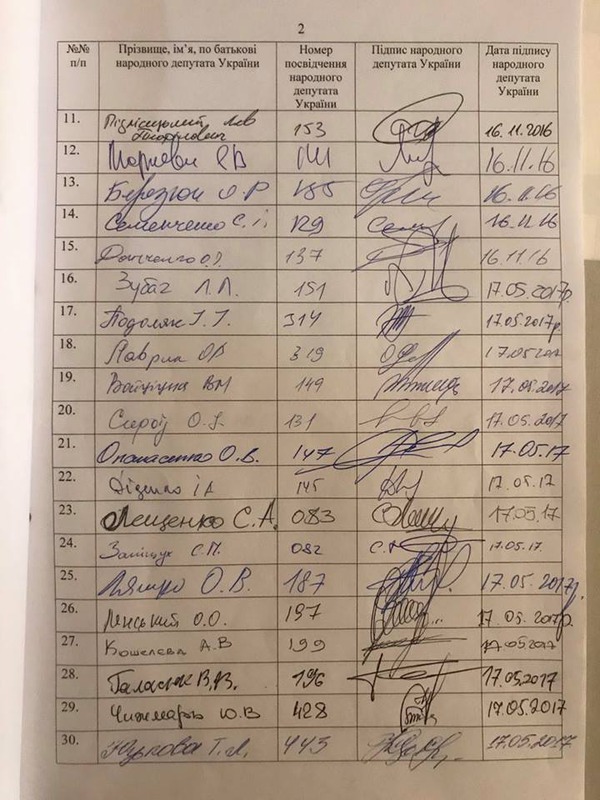 2
№№ п/п Прізвище, ім'я, по батькові народного депутата України Номер посвідчення народного депутата України Підпис народного депутата України Дата підпису народного депутата України
11. Підлісецький Лев 153 16.11.2016
12. 16.11.16
13. Березюк О.Р 185 16.11.16
14. Семенченко С.І. 129 16.11.16
15. 137 16.11.16
16. Зубач Л.Л. 151 17.05.2017р.
17. Подоляк І.І. 314 17.05.2017р
18. 319 17.05.2017
19. ВМ 149 17.05.2017
20. О.І. 131 17.05.2017
21. Опанасенко О.В. 147 17.05.17
22. Діденко ІА 145 17.05.17
23. Лещенко С.А. 083 17.05.17
24. Заліщук С.П. 082 17.05.17.
25. Ляшко О.В. 187 17.05.2017р.
26. Ленський О.О. 197 17.05.2017р.
27. Кошелєва А.В 199 17.05.2017
28. Галасюк В.В. 196 17.05.2017
29. Чижмарь Ю.В 428 17.05.2017
30. Юзькова Т.Л. 443 17.05.2017